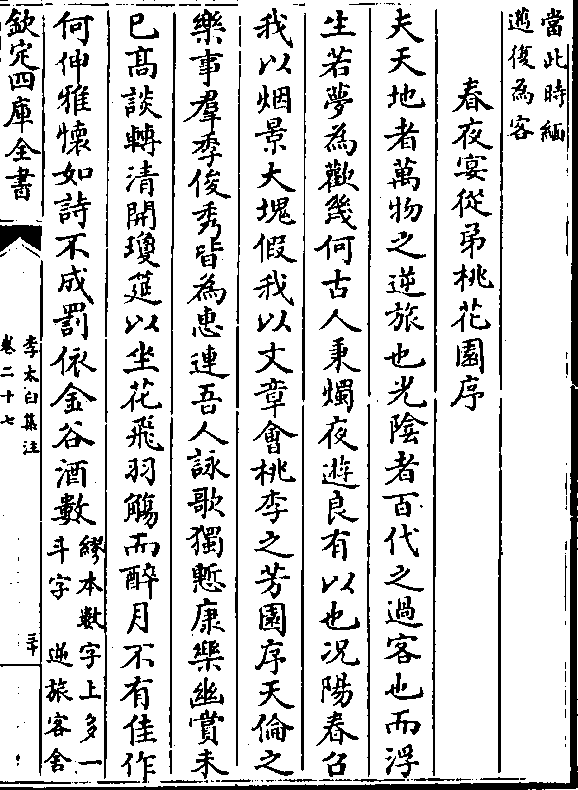 當此時緬
邈復為客
春夜宴從弟桃花園序
夫天地者萬物之逆旅也光陰者百代之過客也而浮
生若夢為歡幾何古人秉燭夜遊良有以也況陽春召
我以烟景大塊假我以文章會桃李之芳園序天倫之
樂事羣季俊秀皆為惠連吾人詠歌獨慙康樂幽賞未
已高談轉清開瓊筵以坐花飛羽觴而醉月不有佳作
何伸雅懷如詩不成罰依金谷酒數
繆本數字上多一
斗字 逆旅客舍
欽定四庫全書
李太白集注
卷二十七
三十